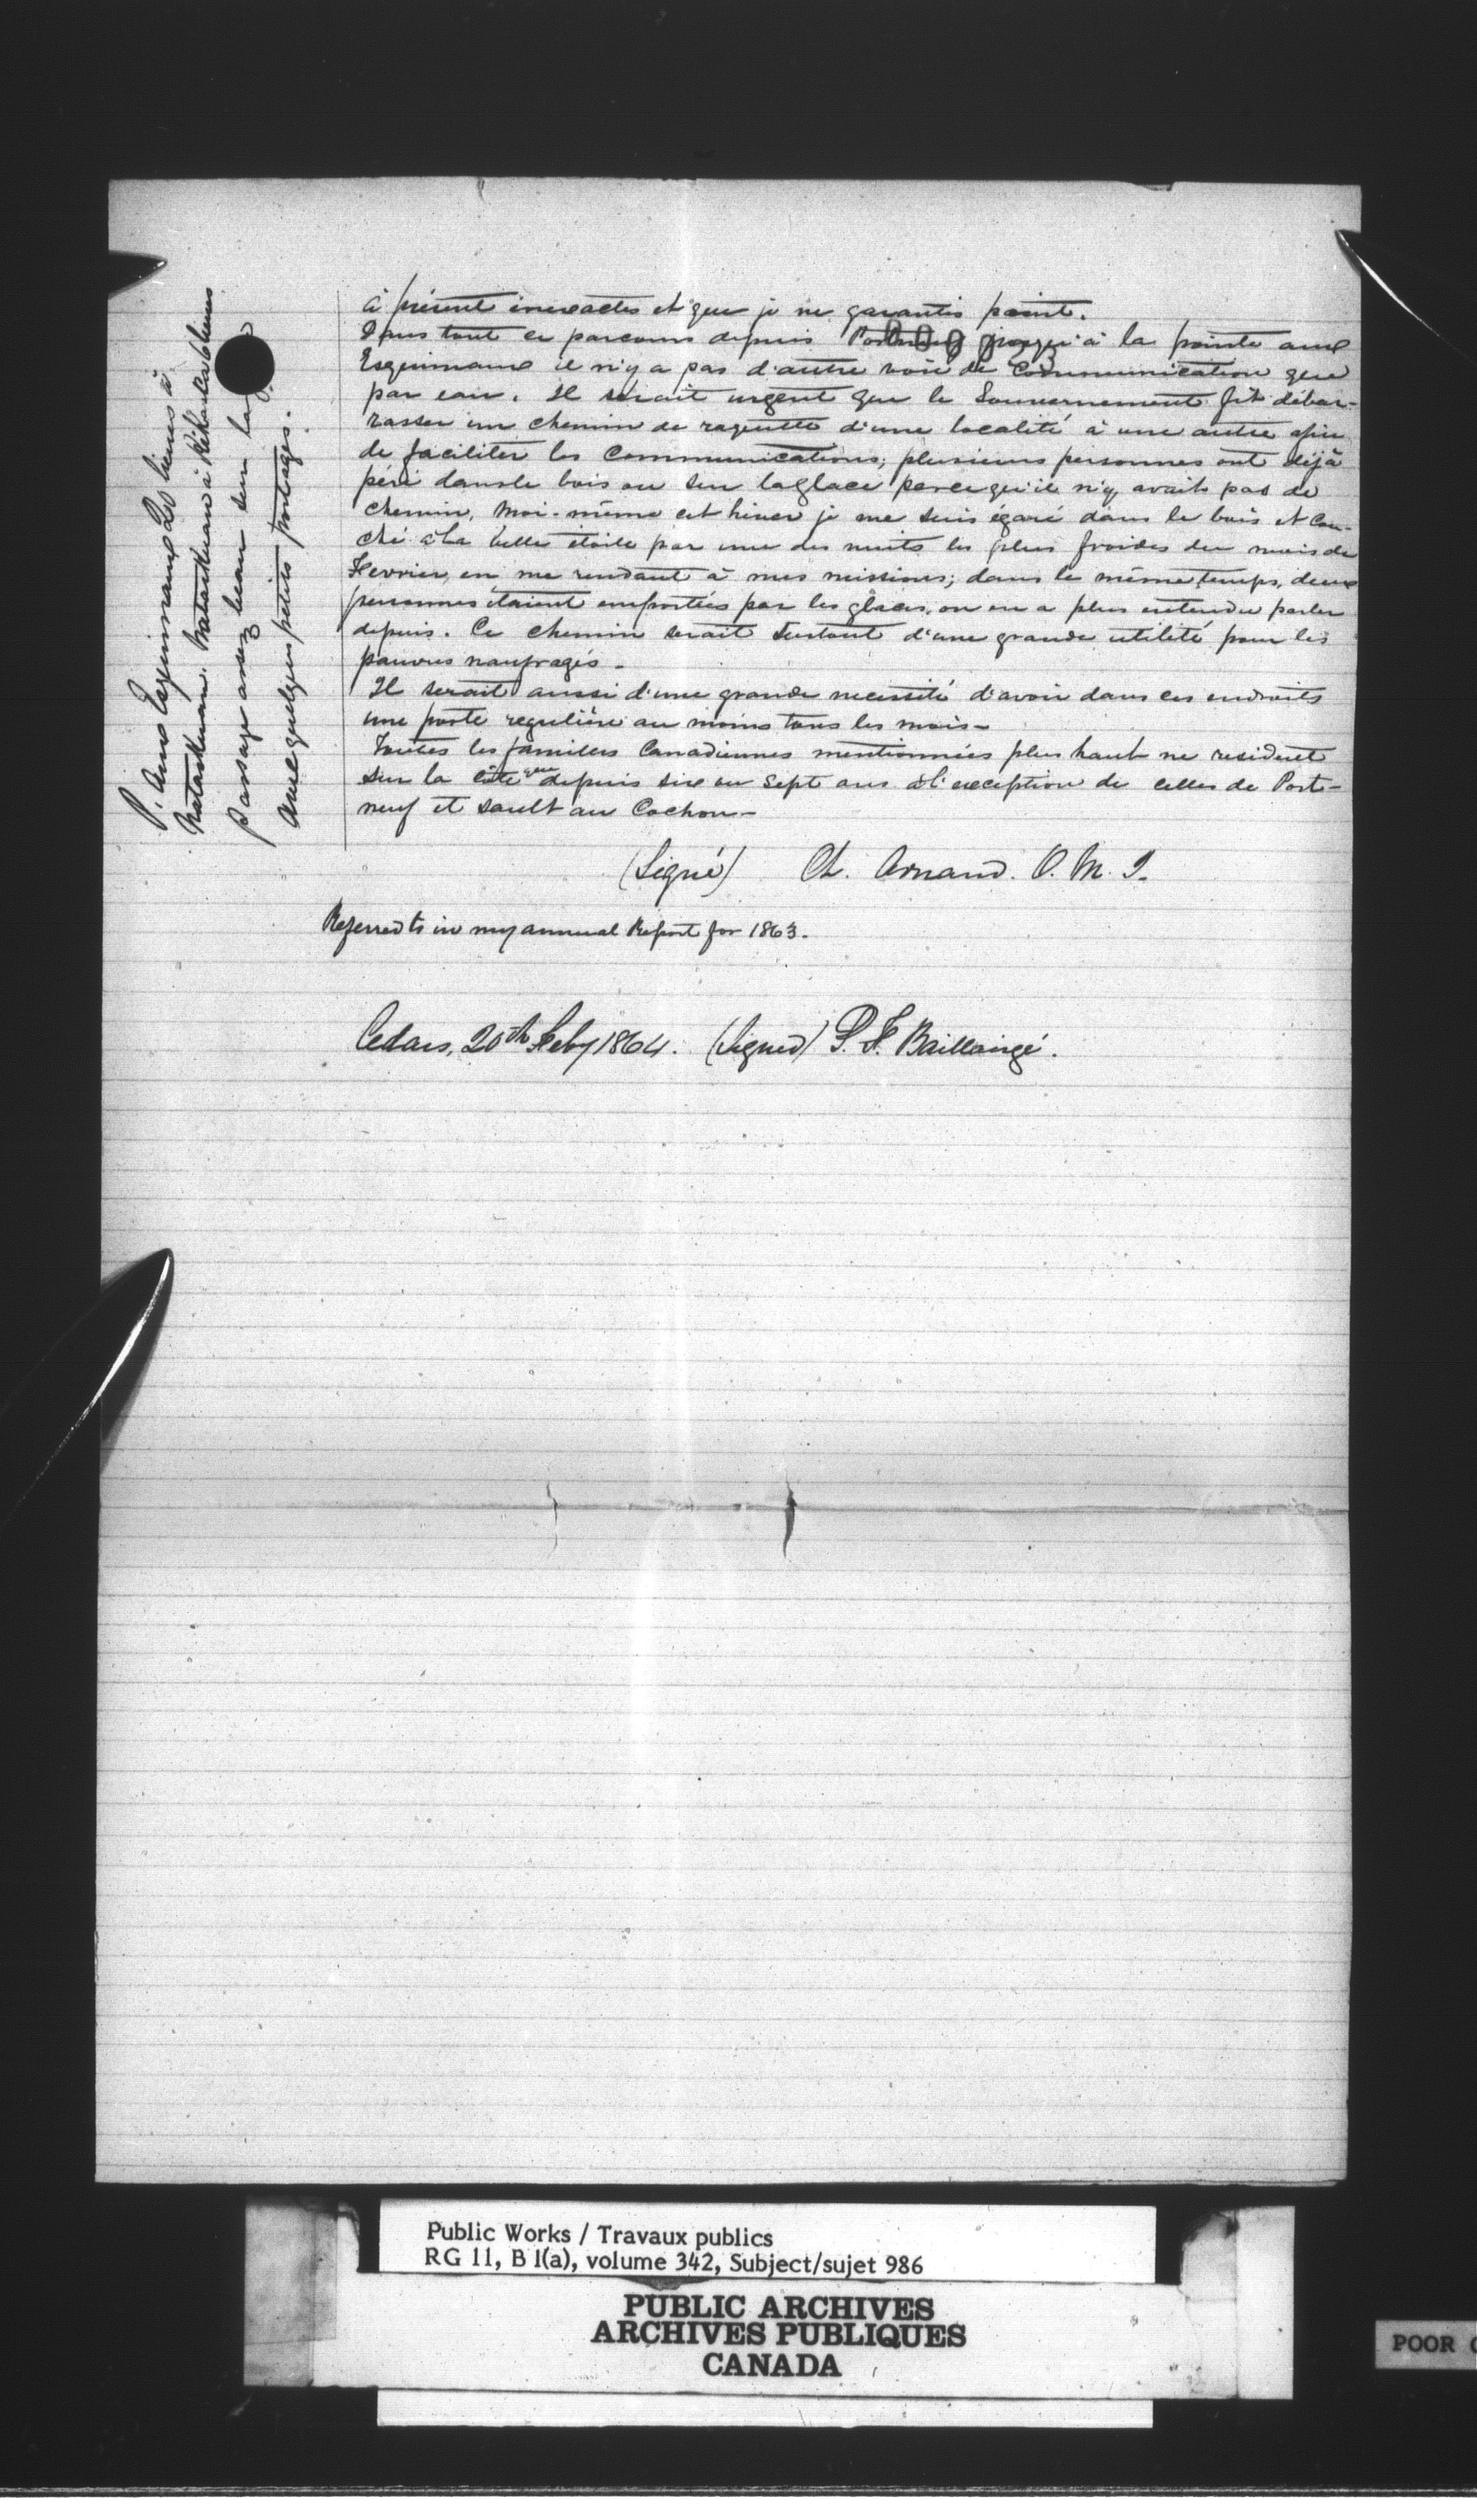 à présent inexactes et que je ne garantis point.
Dans tout ce parcours depuis Portneuf jusqu'à la pointe aux
Esquimaux il n'y a pas d'autre voie de Communication que
par eau. Il serait urgent que le Gouvernement fit débar-
rasser un chemin de raquette d'une localité à une autre afin
de faciliter les Communications; plusieurs personnes ont déjà
péri dans le bois ou sur la glace parce qu'il n'y avait pas de
chemin. Moi-même cet hiver je me suis égaré dans le bois et cou-
ché à la belle étoile par une des nuits les plus froides du mois de
Fevrier, en me rendant à mes missions; dans le même temps, deux
personnes étaient emportées par les glaces, on en a plus entendu parler
depuis. Ce chemin serait surtout d'une grande utilité pour les
pauvres naufragés.
Il serait aussi d'une grande necessité d'avoir dans ces endroits
une poste regulière au moins tous les mois-
Toutes les familles Canadiennes mentionnées plus haut ne resident
sur la côte que depuis six ou Sept ans à l'exception de celles de Port-
neuf et Sault au Cochon-
(Signé) Ch. Arnaud. O. M. I.
Referred to in my annual Report for 1863.
Cedars, 20th Feby 1864. (Signed) P. F. Baillairgé.
P. aux Esquimaux 20 lieues à
Nataskuan. Nataskuan à Kékaska lieues
passage assez beau sur la
quelques petits portages.
Public Works / Travaux publics
RG 11, B 1(a), volume 342, Subject/sujet 986
PUBLIC ARCHIVES
ARCHIVES PUBLIQUES
CANADA
POOR